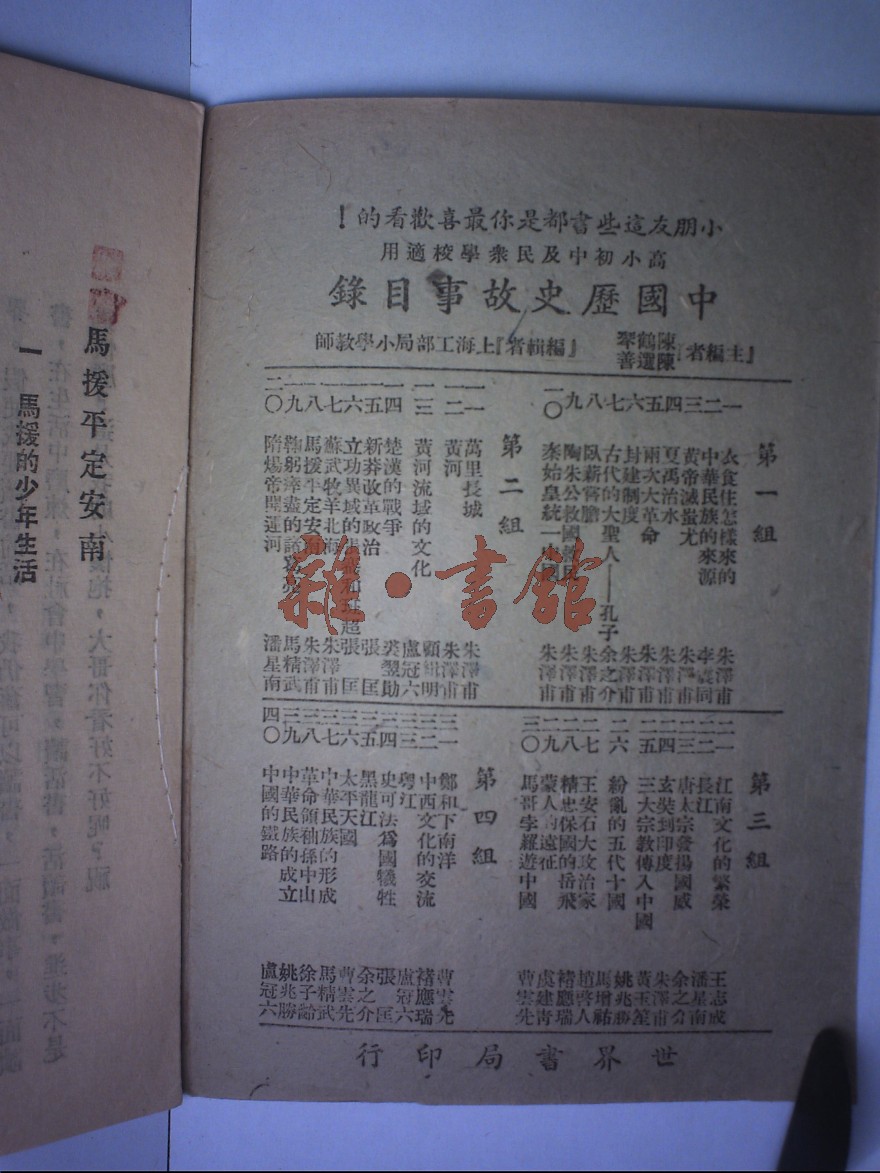 小朋友這些書都是你最喜歡看的!
高小初中及民衆學校適用
中國歷史故事目錄
『主編者』陳鶴琴 陳選善
『編輯者』上海工部局小學教師
第一組
一 衣食住怎樣來的 朱澤甫
二 中華民族的來源 李震同
三 黃帝滅蚩尤 朱澤甫
四 夏禹治水 朱澤甫
五 兩次大革命 朱澤甫
六 封建制度 朱澤甫
七 古代的大聖人——孔子 余之介
八 臥薪嘗膽 朱澤甫
九 陶朱公救國救民 朱澤甫
一〇 秦始皇統一中國 朱澤甫
第二組
一一 萬里長城 朱澤甫
一二 黃河 朱澤甫
一三 黃河流域的文化 顧緝明
一四 楚漢的戰爭 盧冠六
一五 新莽改革政治 裘翌勛
一六 立功異域的張騫和班超 張匡
一七 蘇武牧羊北海 張匡
一八 馬援平定安南 朱澤甫
一九 鞠躬瘁盡的諸葛亮 馬精武
二〇 隋煬帝開運河 潘星南
第三組
二一 江南文化的繁榮 王志成
二二 長江 潘星南
二三 唐太宗發揚國威 余之介
二四 玄奘到印度 朱澤甫
二五 三大宗教傳入中國 黃玉笙
二六 紛亂的五代十國 姚兆勝
二七 王安石大政治家 馬增祜
二八 精忠保國的岳飛 趙啓人
二九 蒙人的遠征 褚應瑞
三〇 馬哥孛羅遊中國 虞建靑
曹雲先
第四組
三一 鄭和下南洋 曹雲先
三二 中西文化的交流 褚應瑞
三三 粵江 盧冠六
三四 史可法爲國犧牲 張匡
三五 黑龍江 余之介
三六 太平天國 曹雲先
三七 中華民族的形成 馬精武
三八 革命領袖孫中山 徐子齡
三九 中華民族的成立 姚兆勝
四〇 中國的鐵路 盧冠六
世界書局印行
馬援平定安南
一 馬援的少年生活
雜·書館